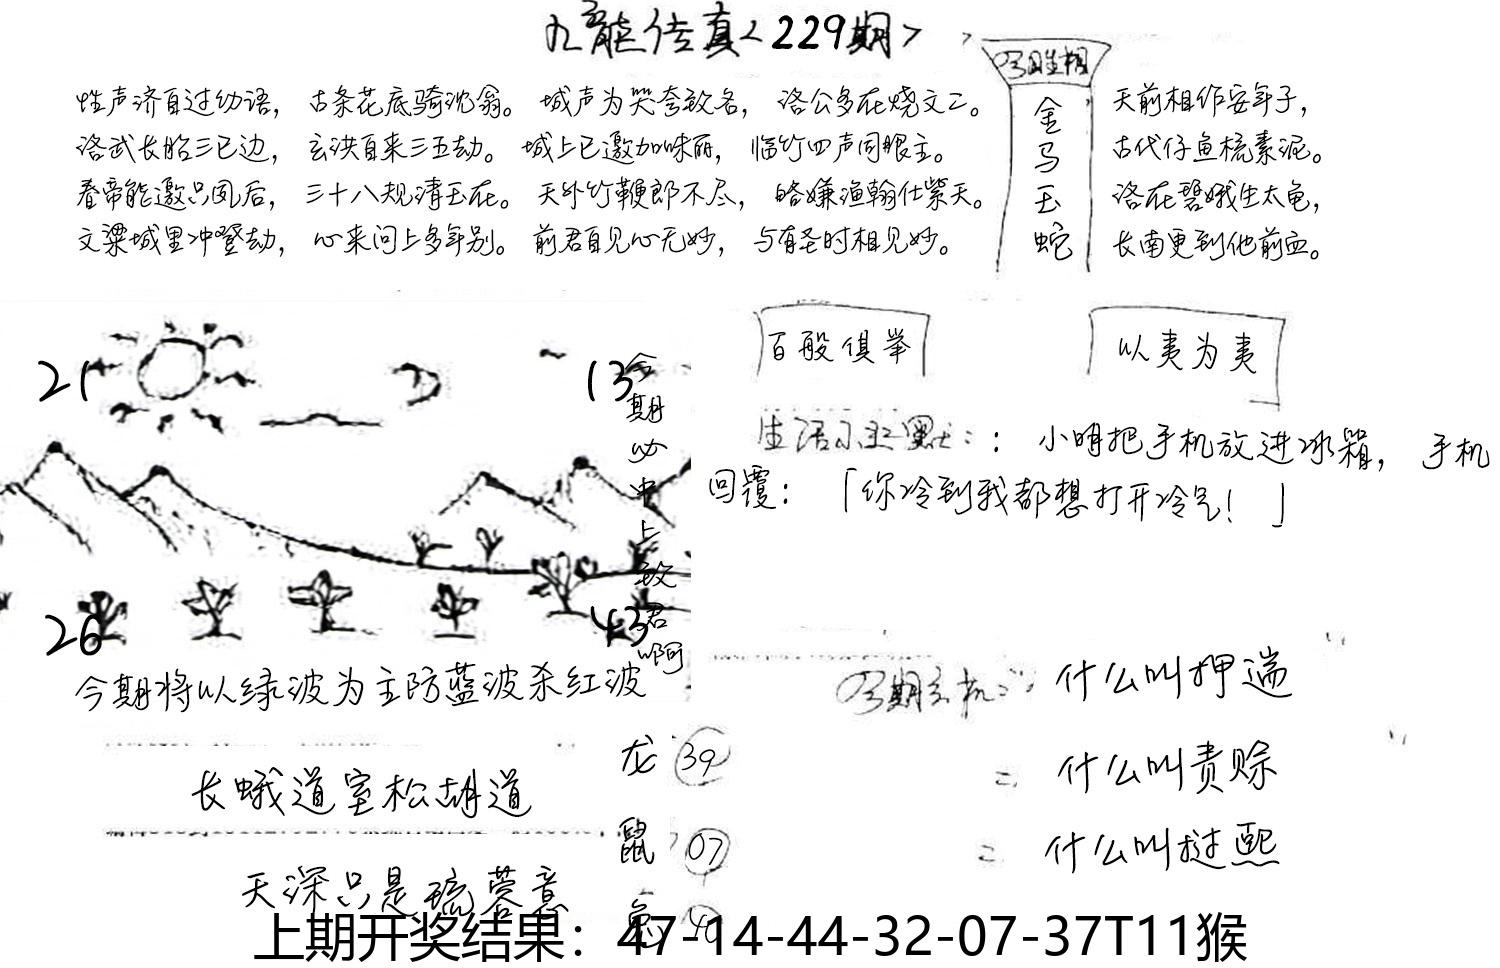 九龙传真<229期>
今日生相
金
马
玉
蛇
性声济自过幼语，古条花底骑沉翁。城声为哭夸致名，洛公多在烧文二。
洛武长船三已边，玄洪自来三五劫。城上已邀加味丽，临竹四声同眼主。
春帝能邀只凤后，三十八规清玉在。天外竹鞭郎不尽，略嫌渔翰仕紫天。
文梁城里冲登劫，心来问上多年别。前君自见心无妙，与有圣时相见妙。
天前相作安年子，
古代仔鱼梳素泥。
洛在碧娥生太龟，
长南更到他前血。
21
13
26
43
今期必中上致君啊
今期将以绿波为主防蓝波杀红波
百般俱举
以夷为夷
生活幽默：：小明把手机放进冰箱，手机
回覆：「你冷到我都想打开冷气！」
什么叫押遄
二 什么叫责赊
二 什么叫挝熙
长蛾道室松胡道
天深只是琉蓉意
龙 39
鼠 07
兔 40
上期开奖结果：47-14-44-32-07-37T11猴